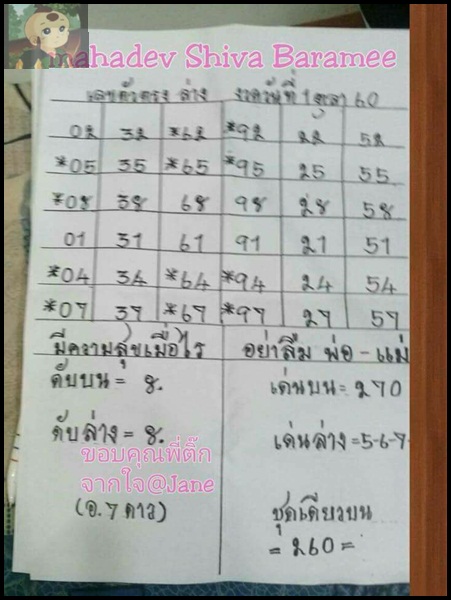 mahadev Shiva Baramee
เลขตัวตรง ล่าง งวดวันที่ 1 ตุลา 60
02 32 *62 *92 22 52
*05 35 *65 *95 25 55
*08 38 68 98 28 58
01 31 61 91 21 51
*04 34 *64 *94 24 54
*07 37 *67 *97 27 57
มีความสุขเมื่อไร อย่าลืม พ่อ - แม่
ดับบน = 8. เด่นบน = 270
ดับล่าง = 8. เด่นล่าง = 5-6-9-
ขอบคุณพี่ติ๊ก
จากใจ@Jane
(อ. 7 ดาว) ชุดเดียวบน
= 260 =